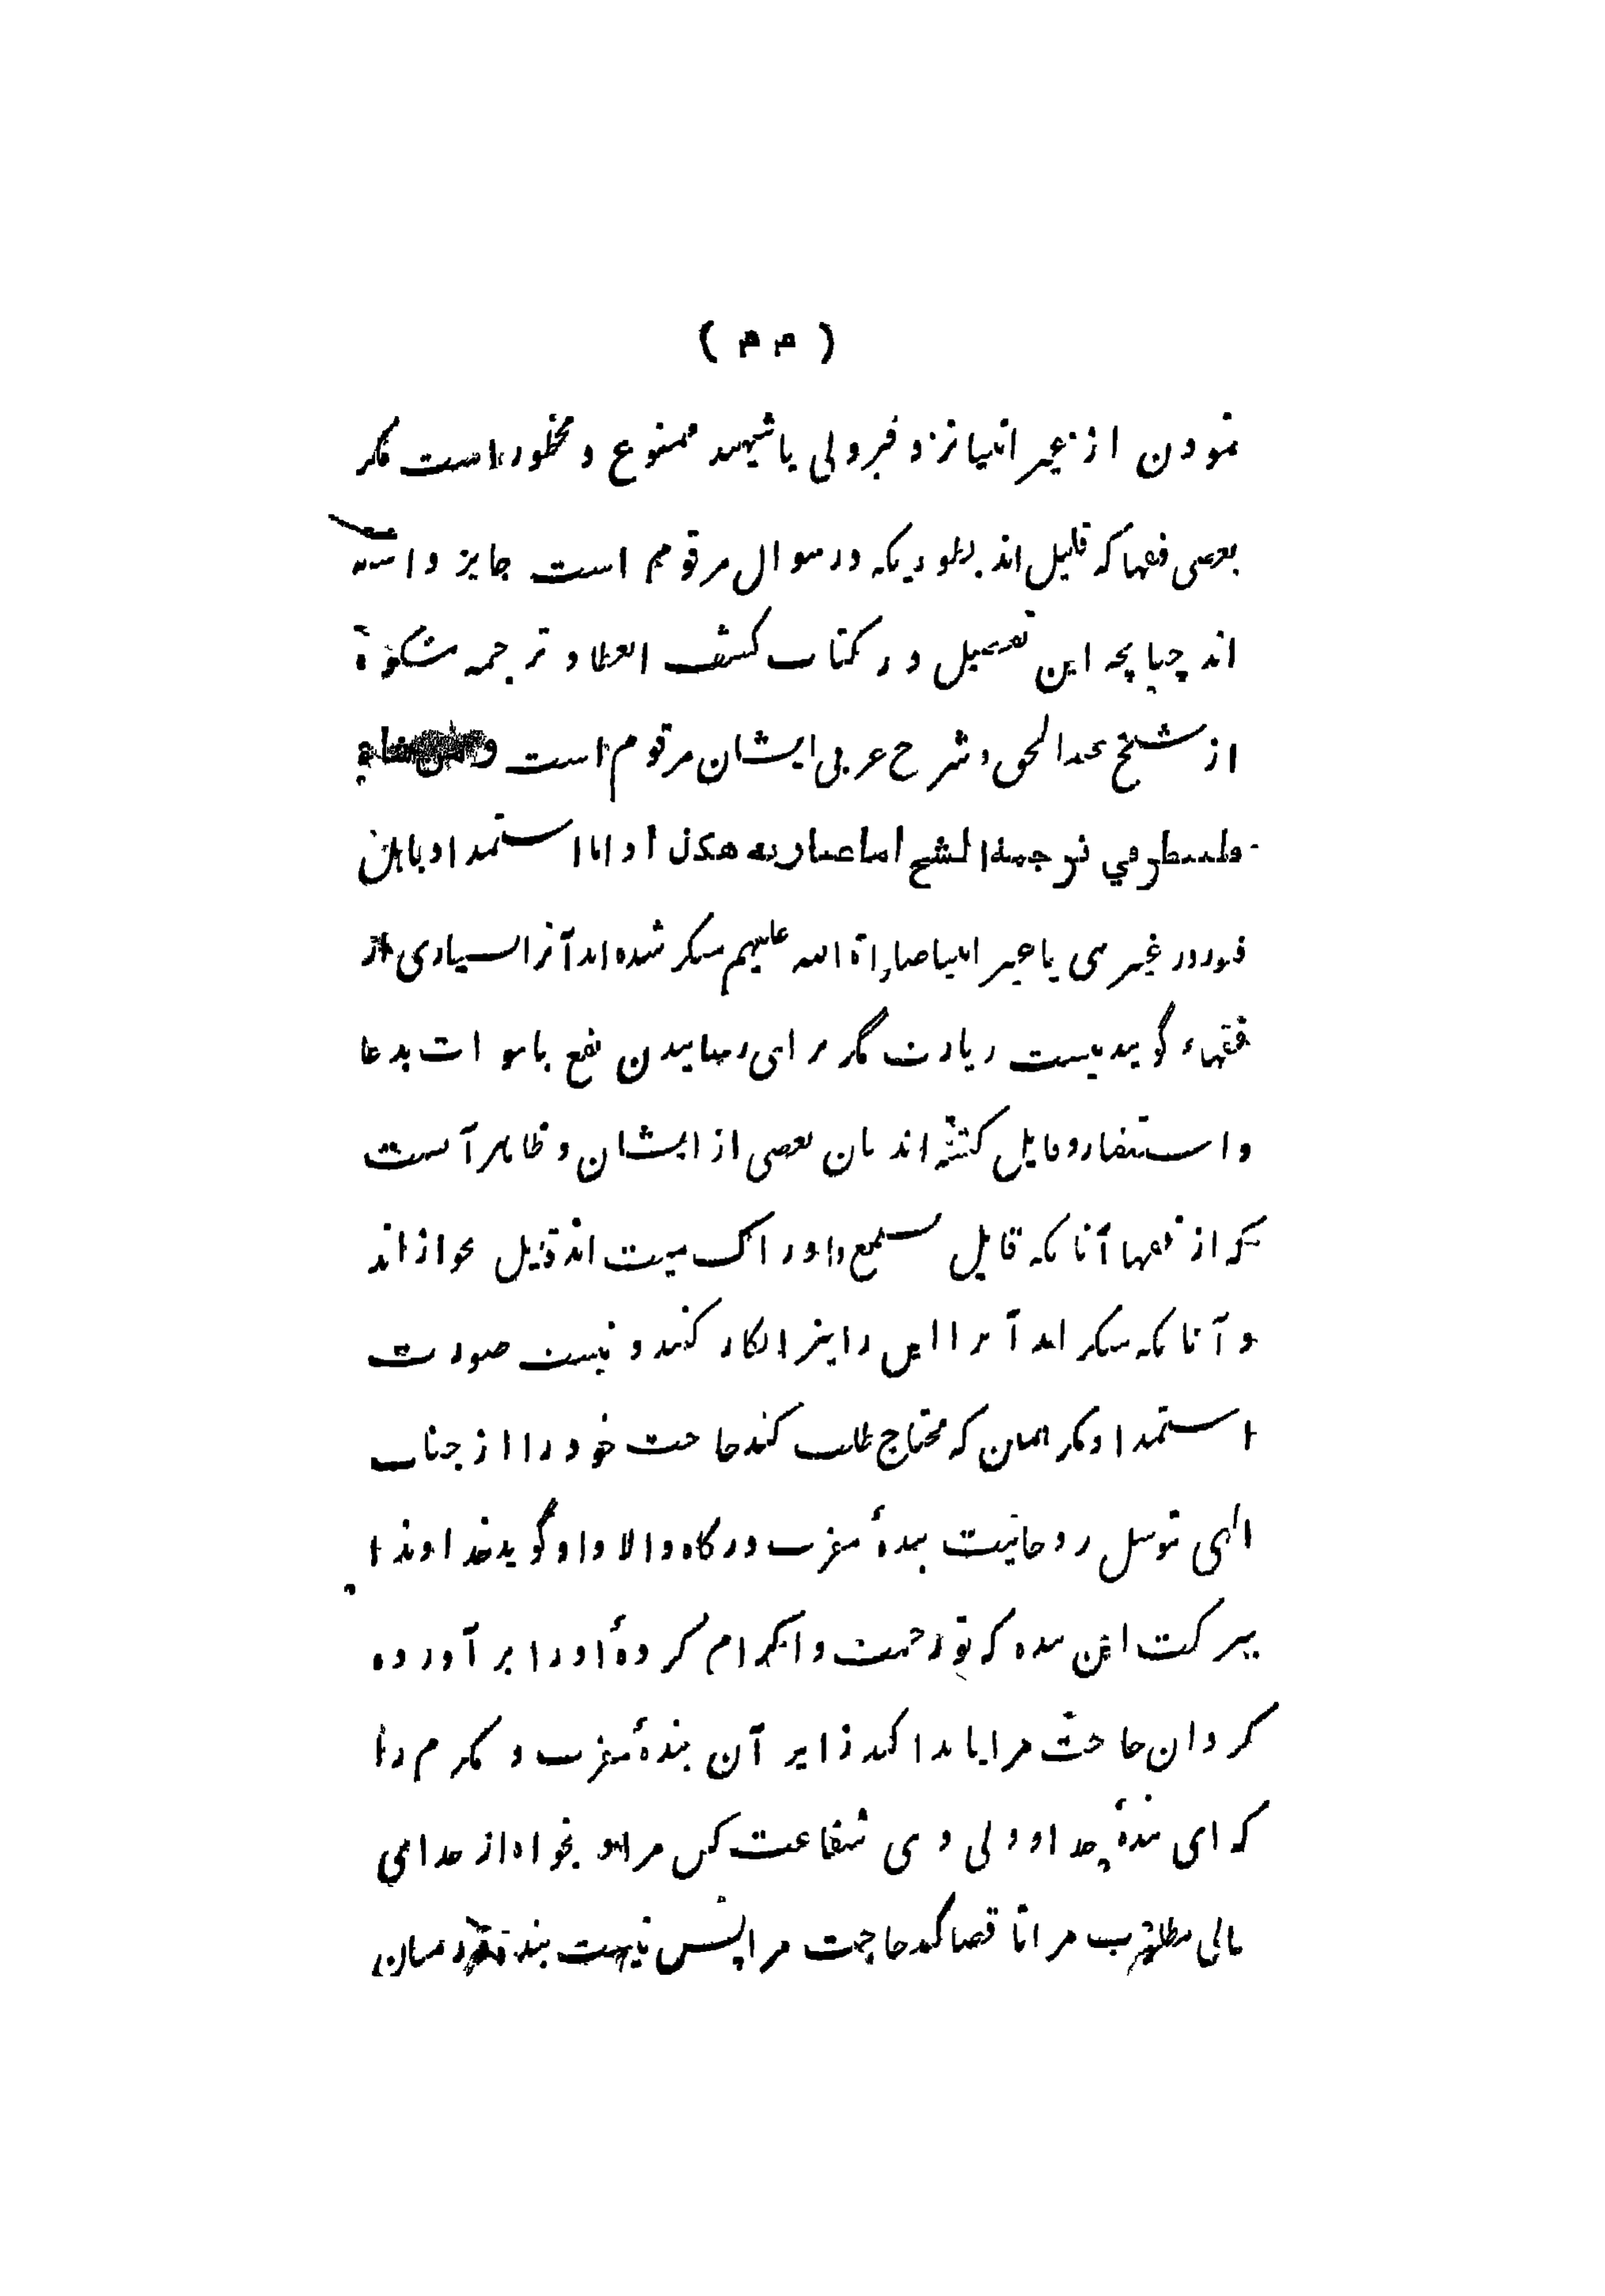 ( ۴۴ )
نمودن از غیر انبیا نزد قبر ولی یا شهید ممنوع و محظور است مگر
بعضی فقها که قلیل اند بطوریکه در سوال مرقوم است جایز داشته
اند چنانچه این تفصیل در کتاب کشف الغطا و ترجمه مشکوة
از شیخ عبدالحق و شرح عربی ایشان مرقوم است
فلینظر في ترجمة الشیخ اما عبارته هکذا و اما استمداد باهل
قبور در غیر نبی یا غیر انبیا صلوة الله علیهم منکر شده اند آنرا بسیاری از
فقهاء گویند نیست زیارت مگر برای رسانیدن نفع باموات بدعا
و استغفار و قایل گشته اند بان بعضی از ایشان و ظاهر آنست
که از فقها آنانکه قایل سمع و ادراک میت اند قایل بجواز اند
و آنانکه منکر اند آنرا این را نیز انکار کنند و نیست صورت
استمداد مگر همان که محتاج طلب کند حاجت خود را از جناب
الهی بتوسل روحانیت بندهٔ مقرب درگاه والا و او گوید خداوندا
ببرکت این بنده که تو رحمت و اکرام کردهٔ او را برآورده
گردان حاجت مرا یا ندا کند زایر آن بندهٔ مقرب و مکرم را
که ای بندهٔ خدا و ولی وی شفاعت کن مرا و بخواه از خدای
تعالی مطلوب مرا تا قضا کند حاجت مرا پس نیست بنده در میان